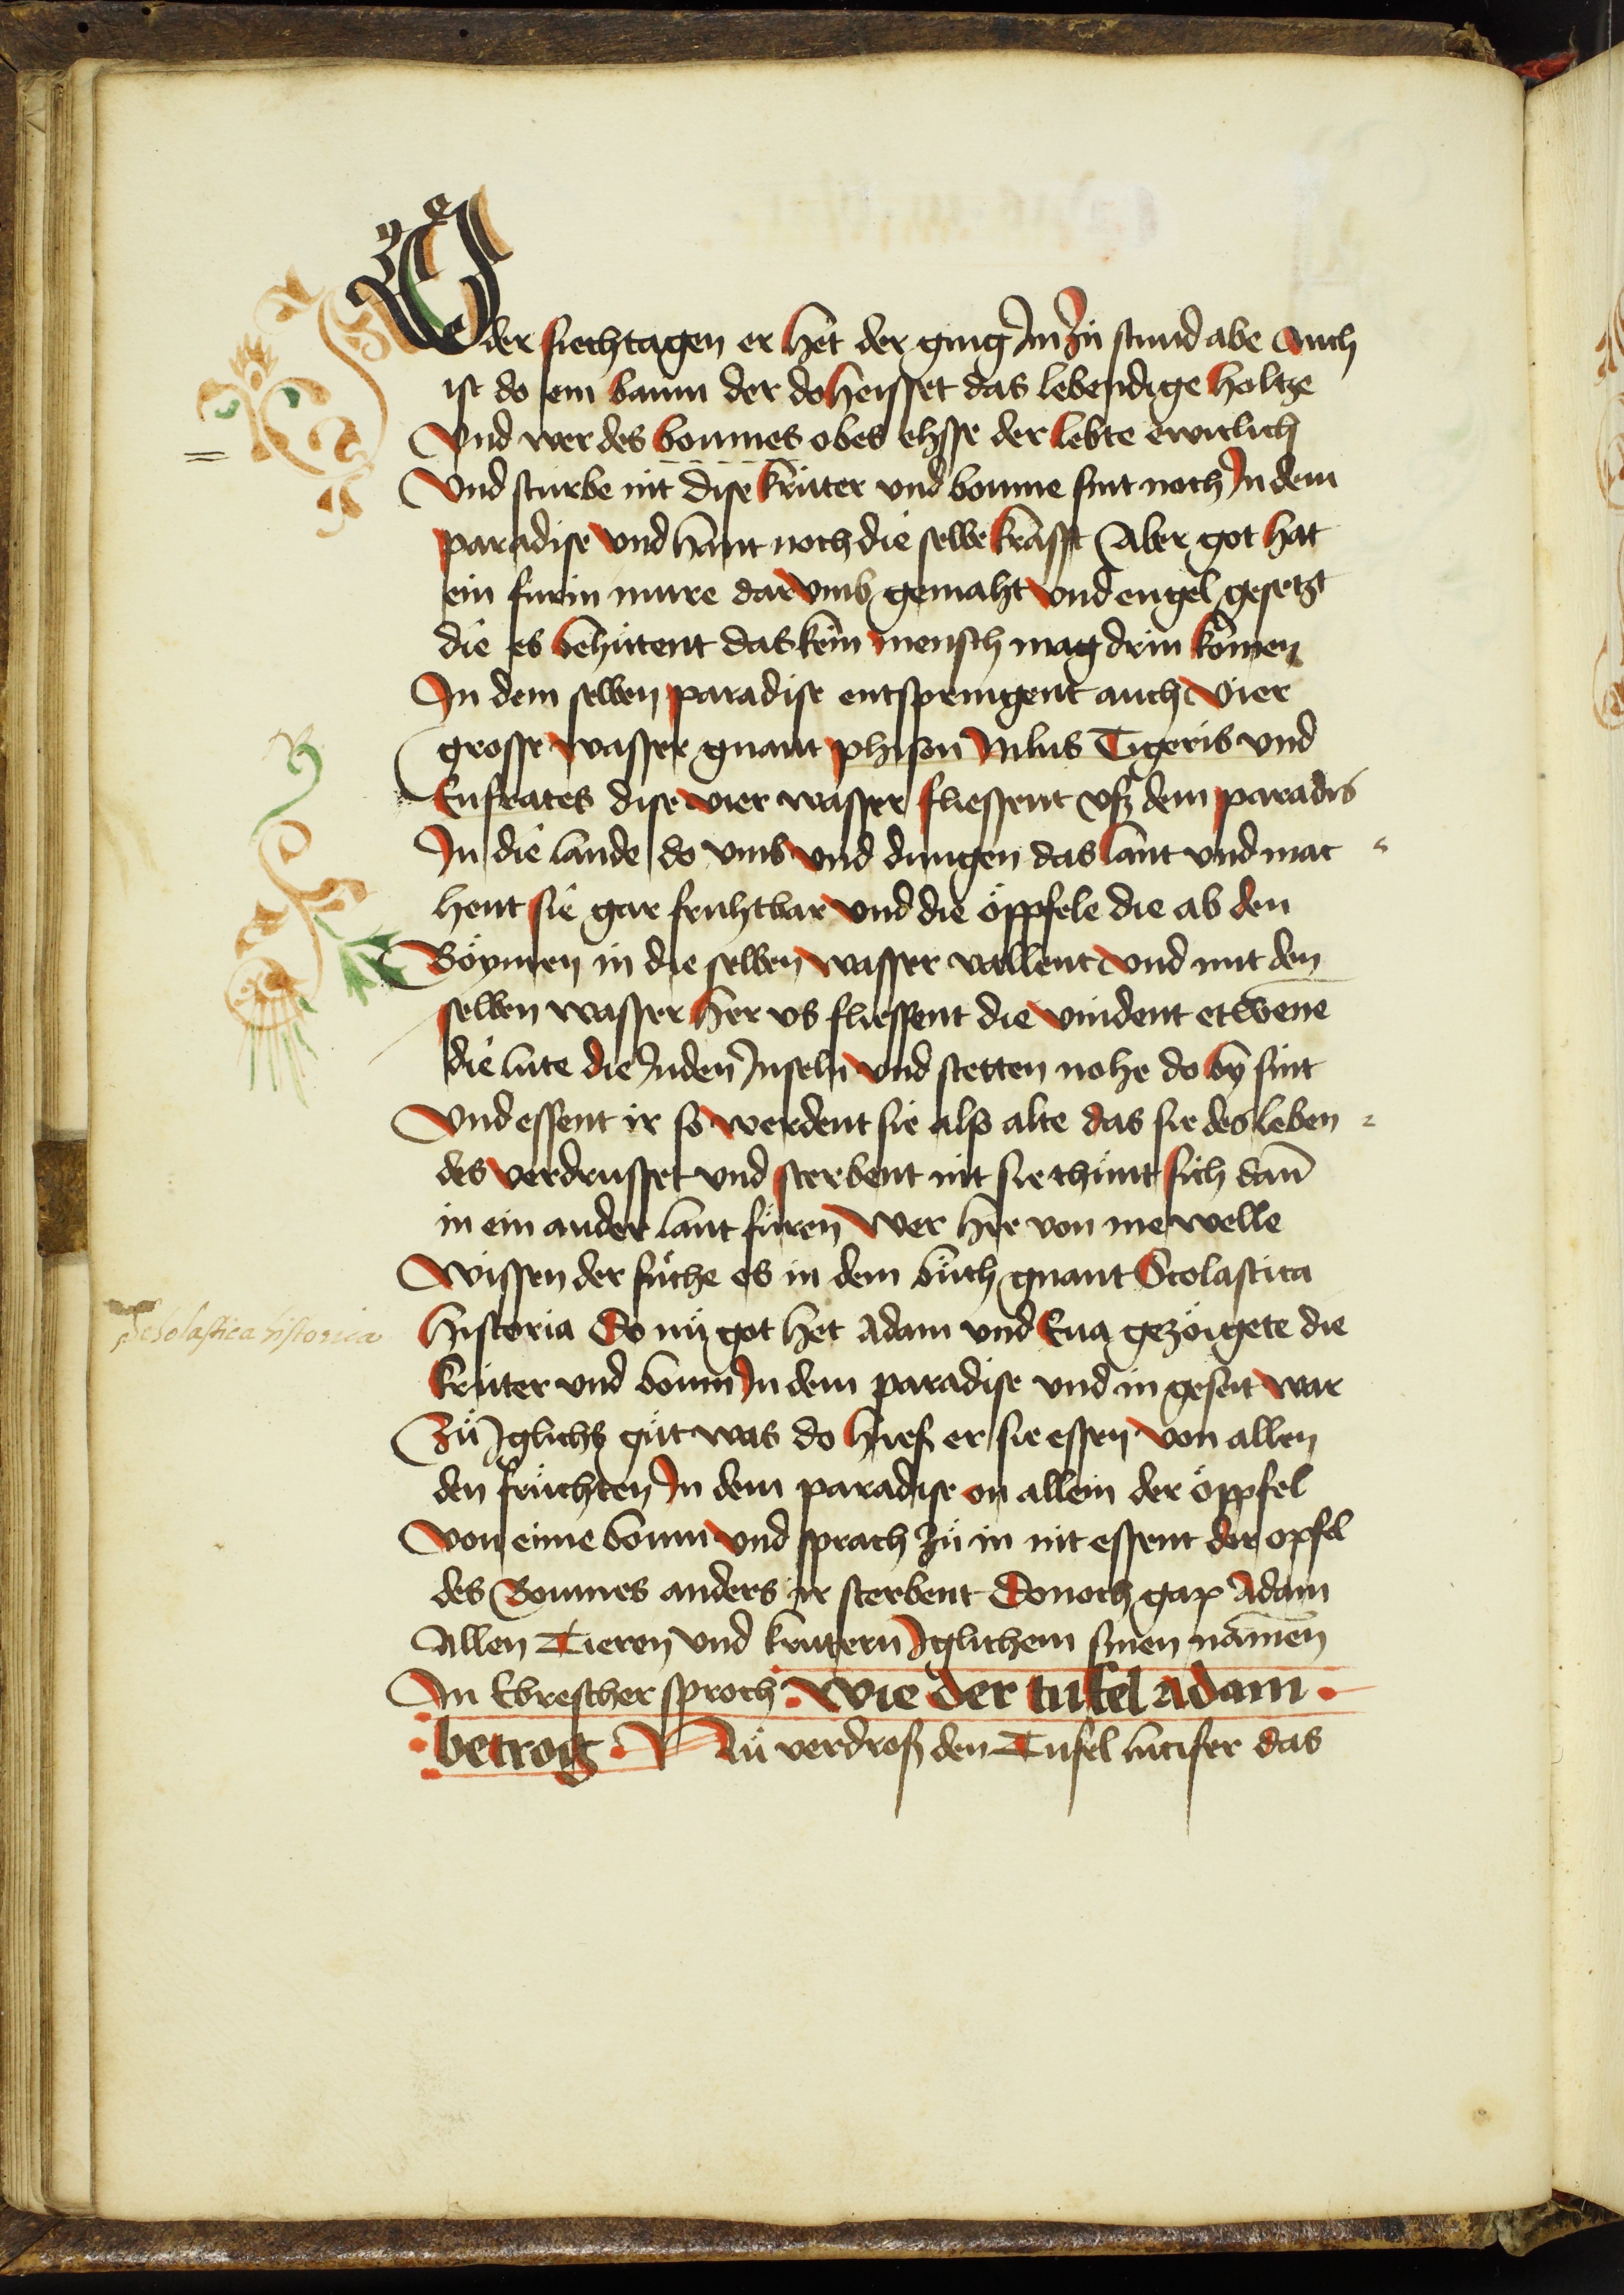 Oder siechtagen er het der ging Im zů stund abe Auch
ist do ein baum der do heisset das lebendige holtze
Vnd wer des boumes obes ehsse der lebte ewiclich
Vnd sturbe nit Dise krüter vnd boume sint noch In dem
paradise vnd hant noch die selbe krafft Aber got hat
ein fürin mure dar vmb gemaht vnd engel gesetzt
die es behütent das kein mensch mag drin komen
In dem selben paradise entspringent auch vier
grosse wasser gnant phison Nilus Tigeris vnd
Eufrates dise vier wasser fliessent vsz dem paradis
In die lande do vmb vnd dungen das lant vnd mac
hent sie gar fruhtbar vnd die öppfele die ab den
Böymen in die selben wasser vallent vnd mit den
selben wasser her vs fliessent die vindent etwene
die lute die In den Inseln vnd stetten nohe do by sint
Vnd essent ir so werdent sie also alte das sie des leben
des verdrusset vnd sterbent nit sie thünt sich dañ
in ein ander lant füren Wer hie von me welle
Wissen der sůche es in dem bůch gnant Scolastica
Scholastica historica
historia Do nů got het Adam vnd Eua gezöigete die
krüter vnd boum In dem paradise vnd in geseit war
Zů Iglichs gůt was do hiesz er sie essen von allen
den früchten In dem paradise on allein der öppfel
Von eime boum vnd sprach zů in nit essent der opfel
des Boumes anders ir sterbent Donoch gap Adam
Allen Tieren vnd krutern Iglichem sinen namen
In Ebrescher sproch Wie der tufel adam
betrog Nů verdrosz den Tufel lucifer das